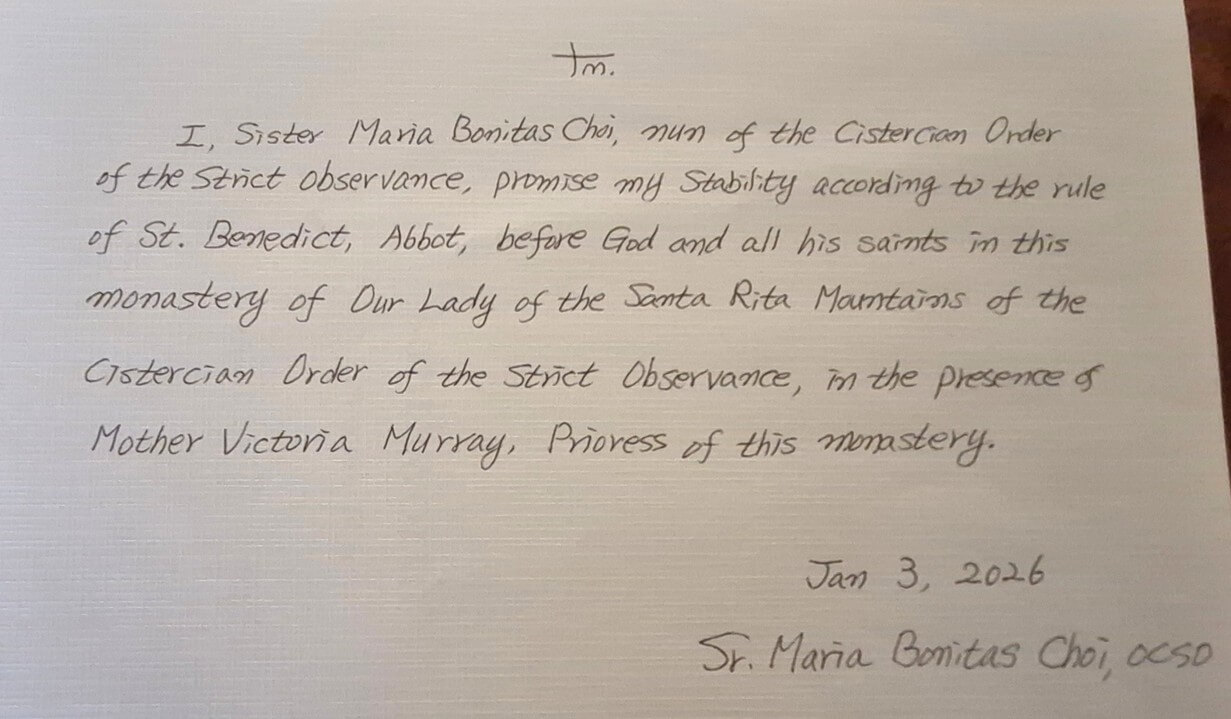 †m.
I, Sister Maria Bonitas Choi, nun of the Cistercian Order
of the Strict Observance, promise my Stability according to the rule
of St. Benedict, Abbot, before God and all his saints in this
monastery of Our Lady of the Santa Rita Mountains of the
Cistercian Order of the Strict Observance, in the presence of
Mother Victoria Murray, Prioress of this monastery.
Jan 3, 2026
Sr. Maria Bonitas Choi, OCSO